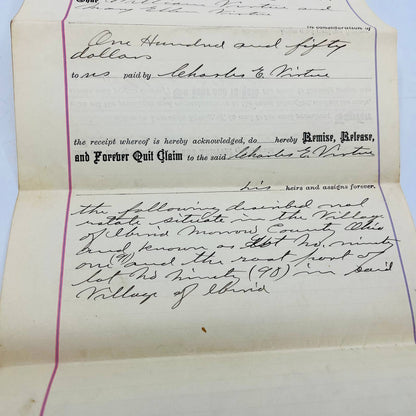 That William Virtue and
Mary E. Virtue
in consideration of
One Hundred and fifty
dollars
to us paid by Charles E. Virtue
the receipt whereof is hereby acknowledged, do hereby Remise, Release,
and Forever Quit Claim to the said Charles E Virtue
his heirs and assigns forever,
the following described real
estate situate in the Village
of Iberia Morrow County Ohio
and known as Lot No. ninety
one (91) and the east part of
lot No ninety (90) in said
Village of Iberia